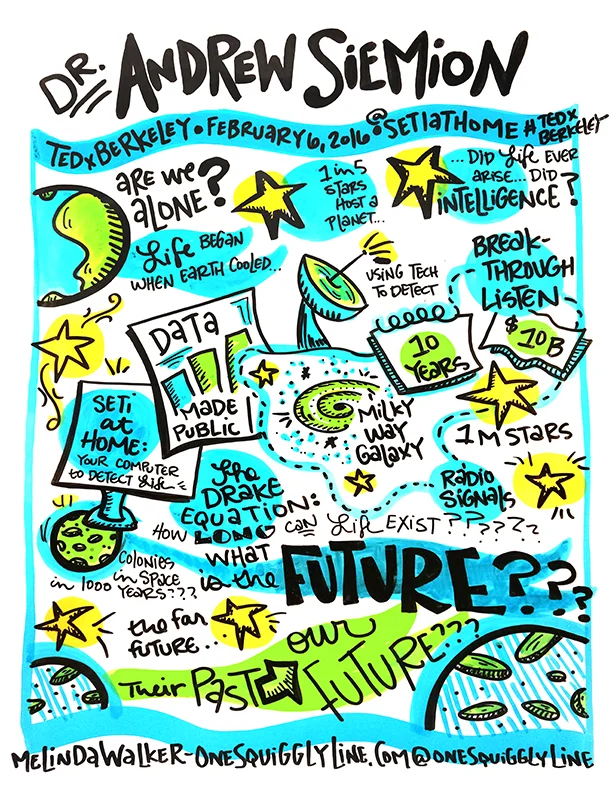 DR. ANDREW SIEMION
TEDxBERKELEY • FEBRUARY 6, 2016 • @SETIATHOME #TEDx
BERKELEY
ARE WE
ALONE?
1 in 5
STARS
HOST A
PLANET...
...DID Life EVER
ARISE... DID
INTELLIGENCE?
Life BEGAN
WHEN EARTH COOLED...
USING TECH
TO DETECT
BREAK-
THROUGH
LISTEN
DATA
MADE
PUBLIC
10
YEARS
$10B
SETI
at
HOME:
YOUR COMPUTER
to DETECT Life
MILKY
WAY
GALAXY
1M STARS
RADIO
SIGNALS
the
DRAKE
EQUATION:
HOW LONG CAN Life EXIST??????
WHAT
is the FUTURE???
COLONIES
in SPACE
in 1000 YEARS???
the far
future..
Their PAST our FUTURE???
MELINDAWALKER-ONESQUIGGLYLINE.COM@ONESQUIGGLYLINE